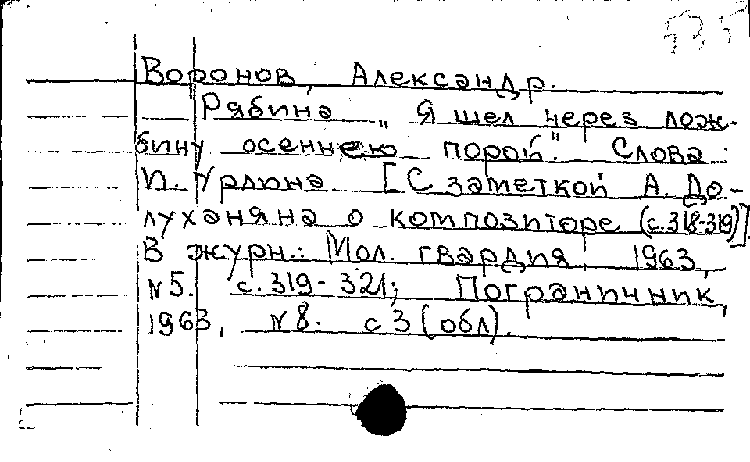 Воронов, Александр.
Рябина „Я шел через лож-
бину осеннею порой." Слова
И. Урлина [С заметкой А. До-
луханяна о композиторе (с.318-319)]
В журн.: Мол. гвардия, 1963,
№5. с.319-321; Пограничник,
1963, №8. с 3 (обл).